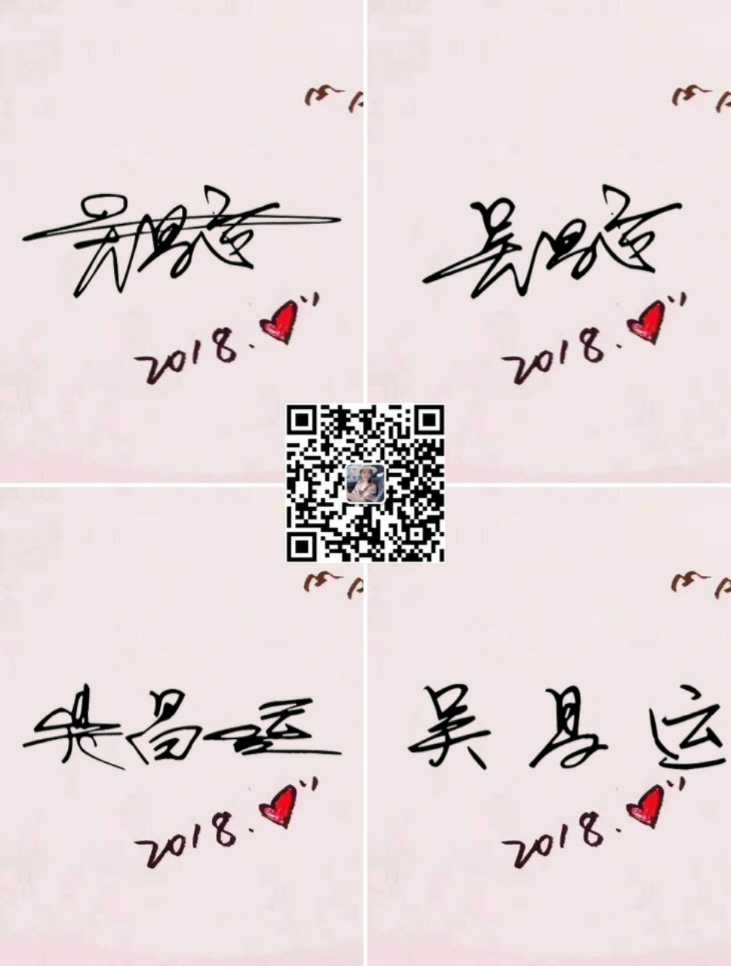 吴昌运
2018.
吴昌运
2018.
吴昌运
2018.
吴昌运
2018.